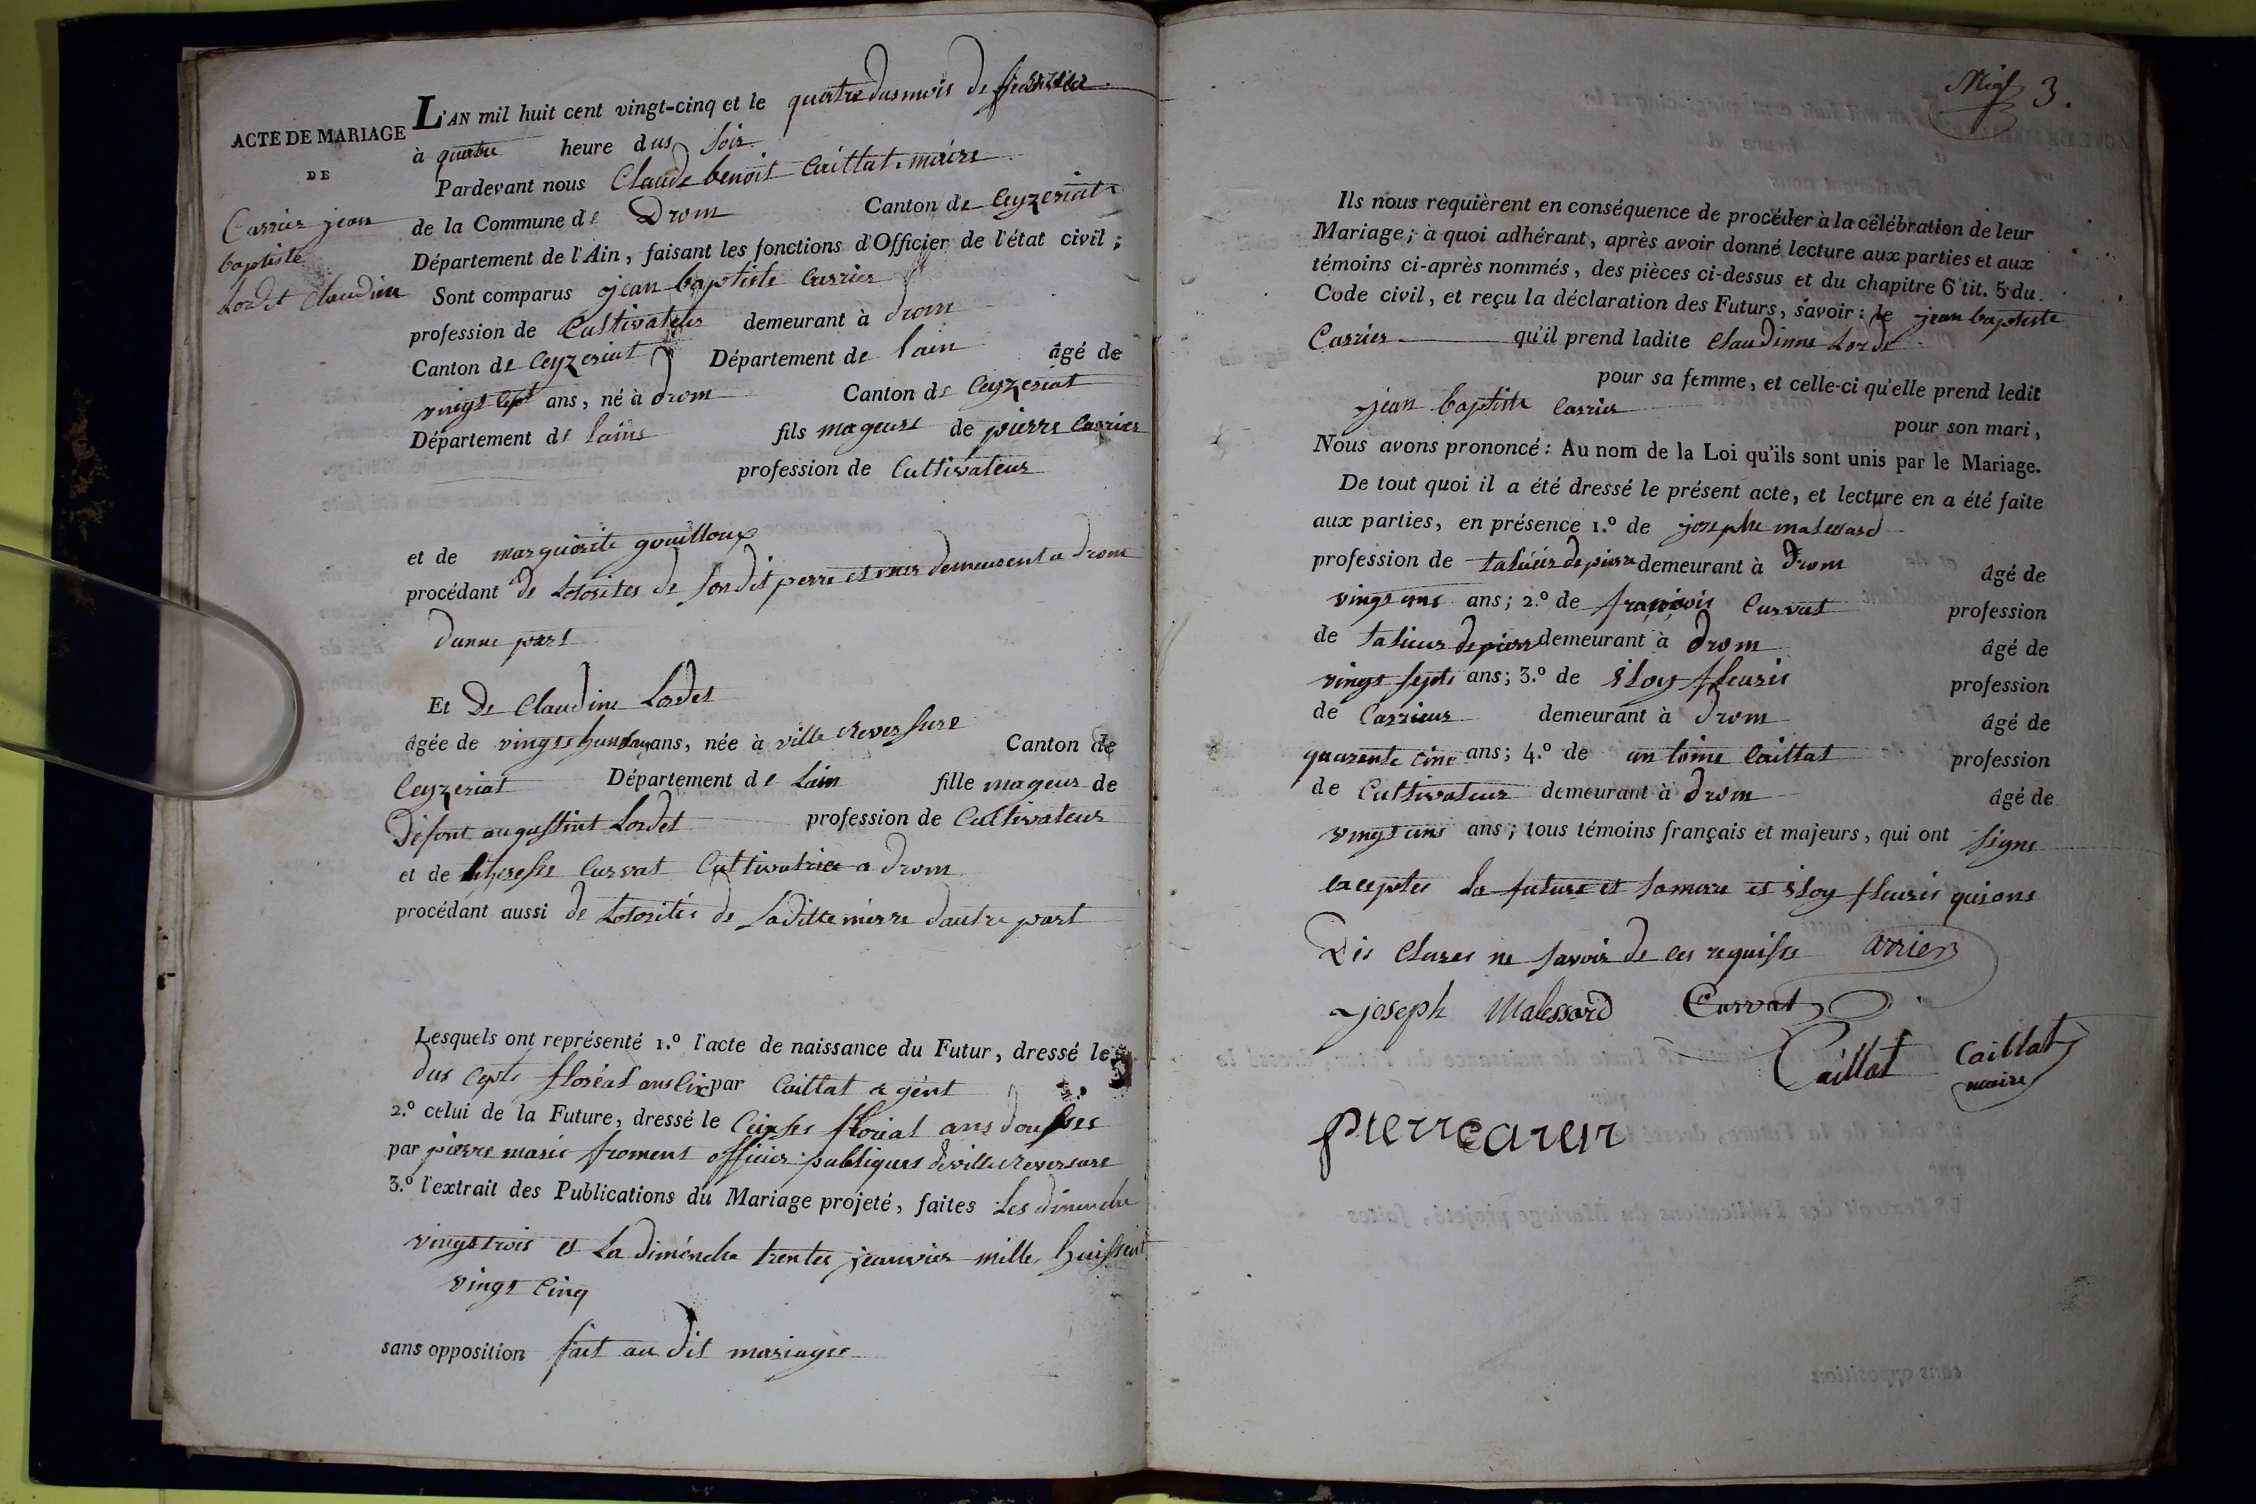 ACTE DE MARIAGE
DE
Carrier jean
baptiste
Lordet Claudine
L'AN mil huit cent vingt-cinq et le quatre dus mois de
à quatre heure dus soir
Pardevant nous Claude benoit Caillat maire
de la Commune de Drom Canton de Ceyzeriat
Département de l'Ain, faisant les fonctions d'Officier de l'état civil ;
Sont comparus jean baptiste Carrier
profession de Cultivateur demeurant à drom
Canton de Ceyzeriat Département de lain âgé de
vingt cept ans, né à drom Canton de Ceyzeriat
Département de lains fils mageure de pierre Carrier
profession de Cultivateur
et de marguerite gouilloux
procédant de Lotorites de sondit perre et mer demeurent a drom
dunne part
Et De Claudine Lordet
âgée de vingt ans, née à ville Reversure Canton de
Ceyzeriat Département de Lain fille mageur de
Defont augustint Lordet profession de Cultivateur
et de theresse Curvat Cultivatrice a drom
procédant aussi de Lotorités de Laditte merre dautre part
Lesquels ont représenté 1.º l'acte de naissance du Futur, dressé le
dus cepts floréal ans six par Caillat agent
2.º celui de la Future, dressé le floréal ans
par pierre marie froment officier publiques de ville Reversure
3.º l'extrait des Publications du Mariage projeté, faites Les dimenche
vingt trois et La diménche trentes jeanvier mille huissent
vingt Cinq
sans opposition fait au dit mariagee
3.
Ils nous requièrent en conséquence de procéder à la célébration de leur
Mariage ; à quoi adhérant, après avoir donné lecture aux parties et aux
témoins ci-après nommés, des pièces ci-dessus et du chapitre 6 tit. 5 du
Code civil, et reçu la déclaration des Futurs, savoir : le jean baptiste
Carrier qu'il prend ladite Claudinne Lordet
pour sa femme, et celle-ci qu'elle prend ledit
jean baptiste Carrier
pour son mari,
Nous avons prononcé : Au nom de la Loi qu'ils sont unis par le Mariage.
De tout quoi il a été dressé le présent acte, et lecture en a été faite
aux parties, en présence 1.º de josephe malessard
profession de talieur de pierre demeurant à Drom âgé de
vingt ans ; 2.º de françois Curvat profession
de talieur de pierr demeurant à drom âgé de
vingt septs ans ; 3.º de iloy fleurie profession
de Carrieur demeurant à drom âgé de
quarente cinc ans ; 4.º de antoine Caillat profession
de Cultivateur demeurant à drom âgé de
vingt ans ; tous témoins français et majeurs, qui ont signe
exceptes La future et samerre et iloy fleurie quions
Dés Clares ne savoir de ces requisse arrier
joseph Malessard Curvat
Caillat Caillat
maire
pierre carier